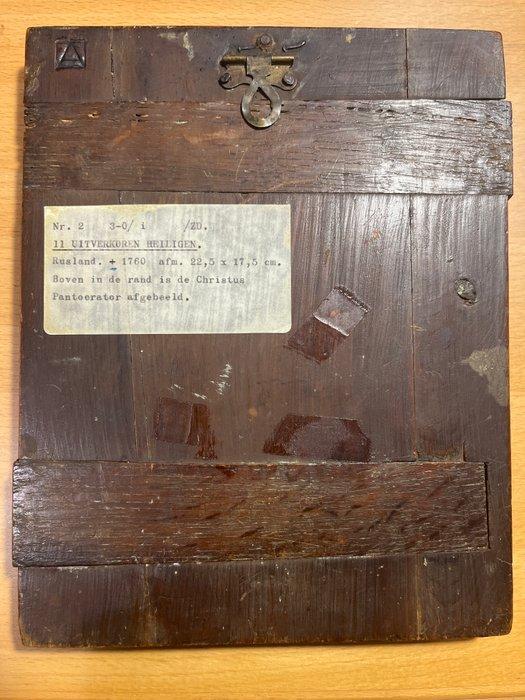 Nr. 2 3-0/ i /ZD.
11 UITVERKOREN HEILIGEN.
Rusland. + 1760 afm. 22,5 x 17,5 cm.
Boven in de rand is de Christus
Pantocrator afgebeeld.